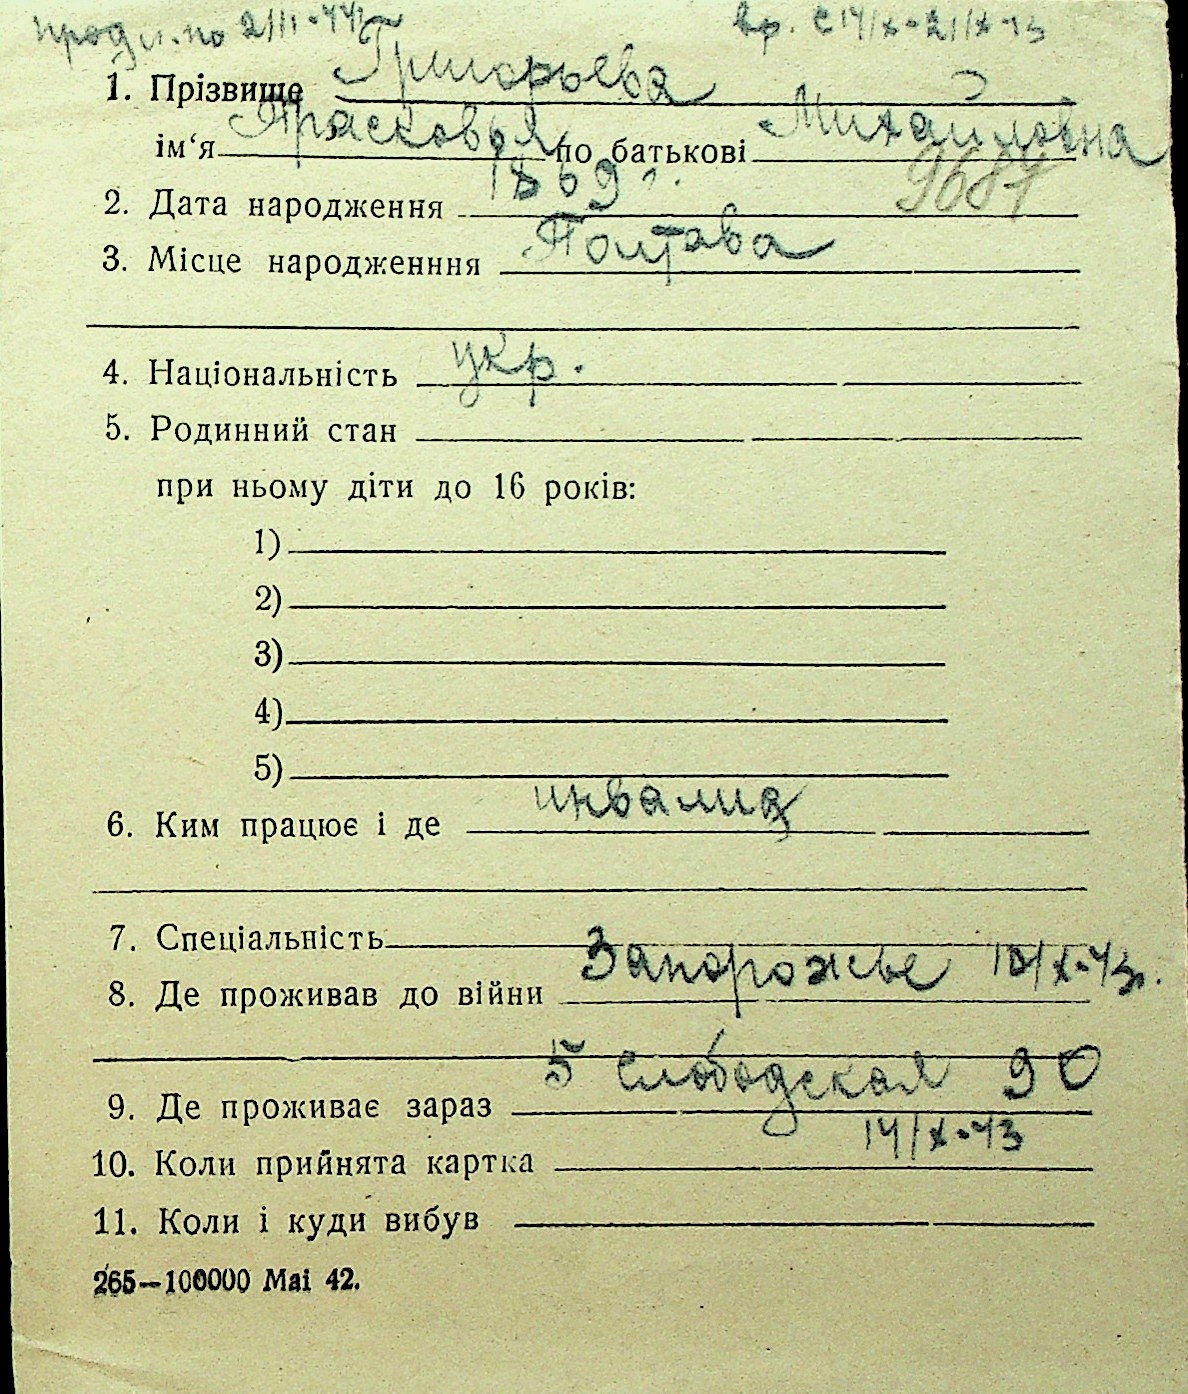 продл. по 2/II-44г вр. с 14/X-21/X-43
1. Прізвище Григорьева
ім‘я Прасковья по батькові Михайловна
2. Дата народження 1869 г. 9687
3. Місце народженння Полтава
4. Національність укр.
5. Родинний стан
при ньому діти до 16 років:
1)
2)
3)
4)
5)
6. Ким працює і де инвалид
7. Спеціальність
8. Де проживав до війни Запорожье 10/X-43г.
9. Де проживає зараз 5 Слободская 90
10. Коли прийнята картка 14/X-43
11. Коли і куди вибув
265—100000 Mai 42.